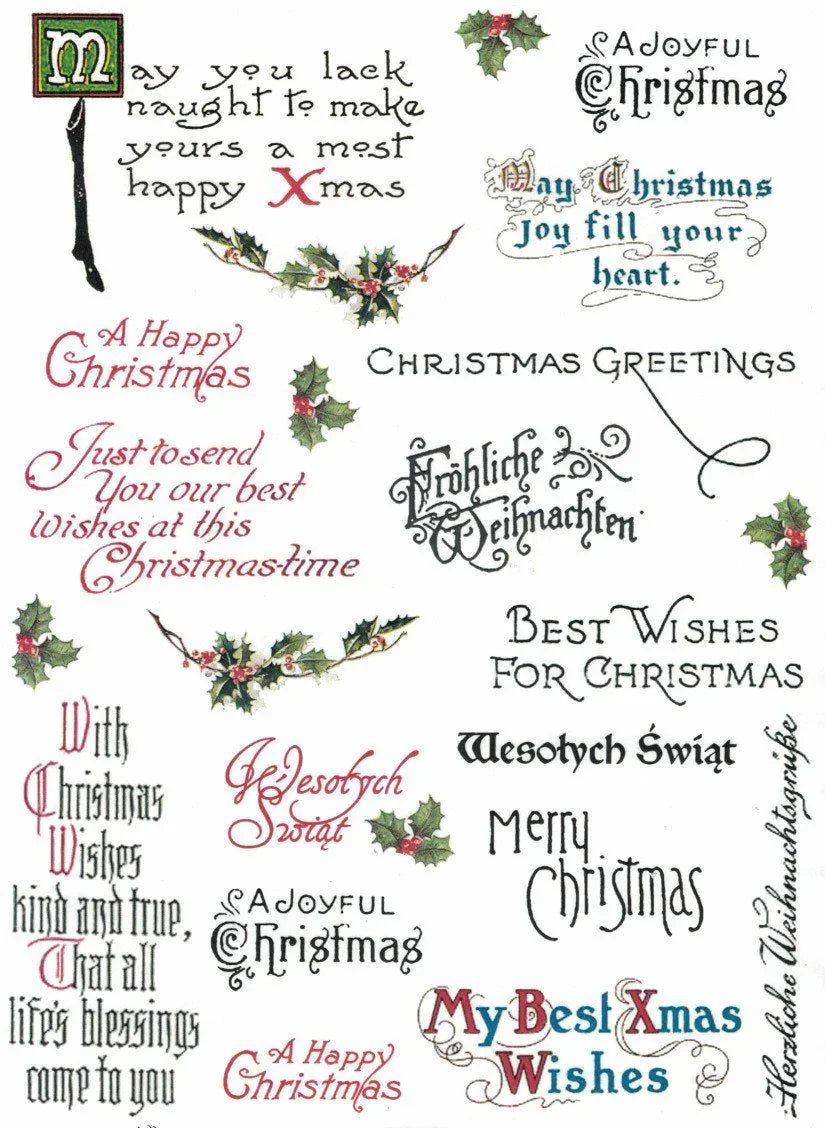 May you lack
naught to make
yours a most
happy Xmas
A Joyful
Christmas
May Christmas
Joy fill your
heart.
A Happy
Christmas
Christmas Greetings
Just to send
You our best
Wishes at this
Christmas-time
Fröhliche
Weihnachten
Best Wishes
for Christmas
With
Christmas
Wishes
kind and true,
That all
life's blessings
come to you
Wesołych
Świąt
Wesołych Świąt
Merry
Christmas
Herzliche Weihnachtsgrüße
A Joyful
Christmas
A Happy
Christmas
My Best Xmas
Wishes